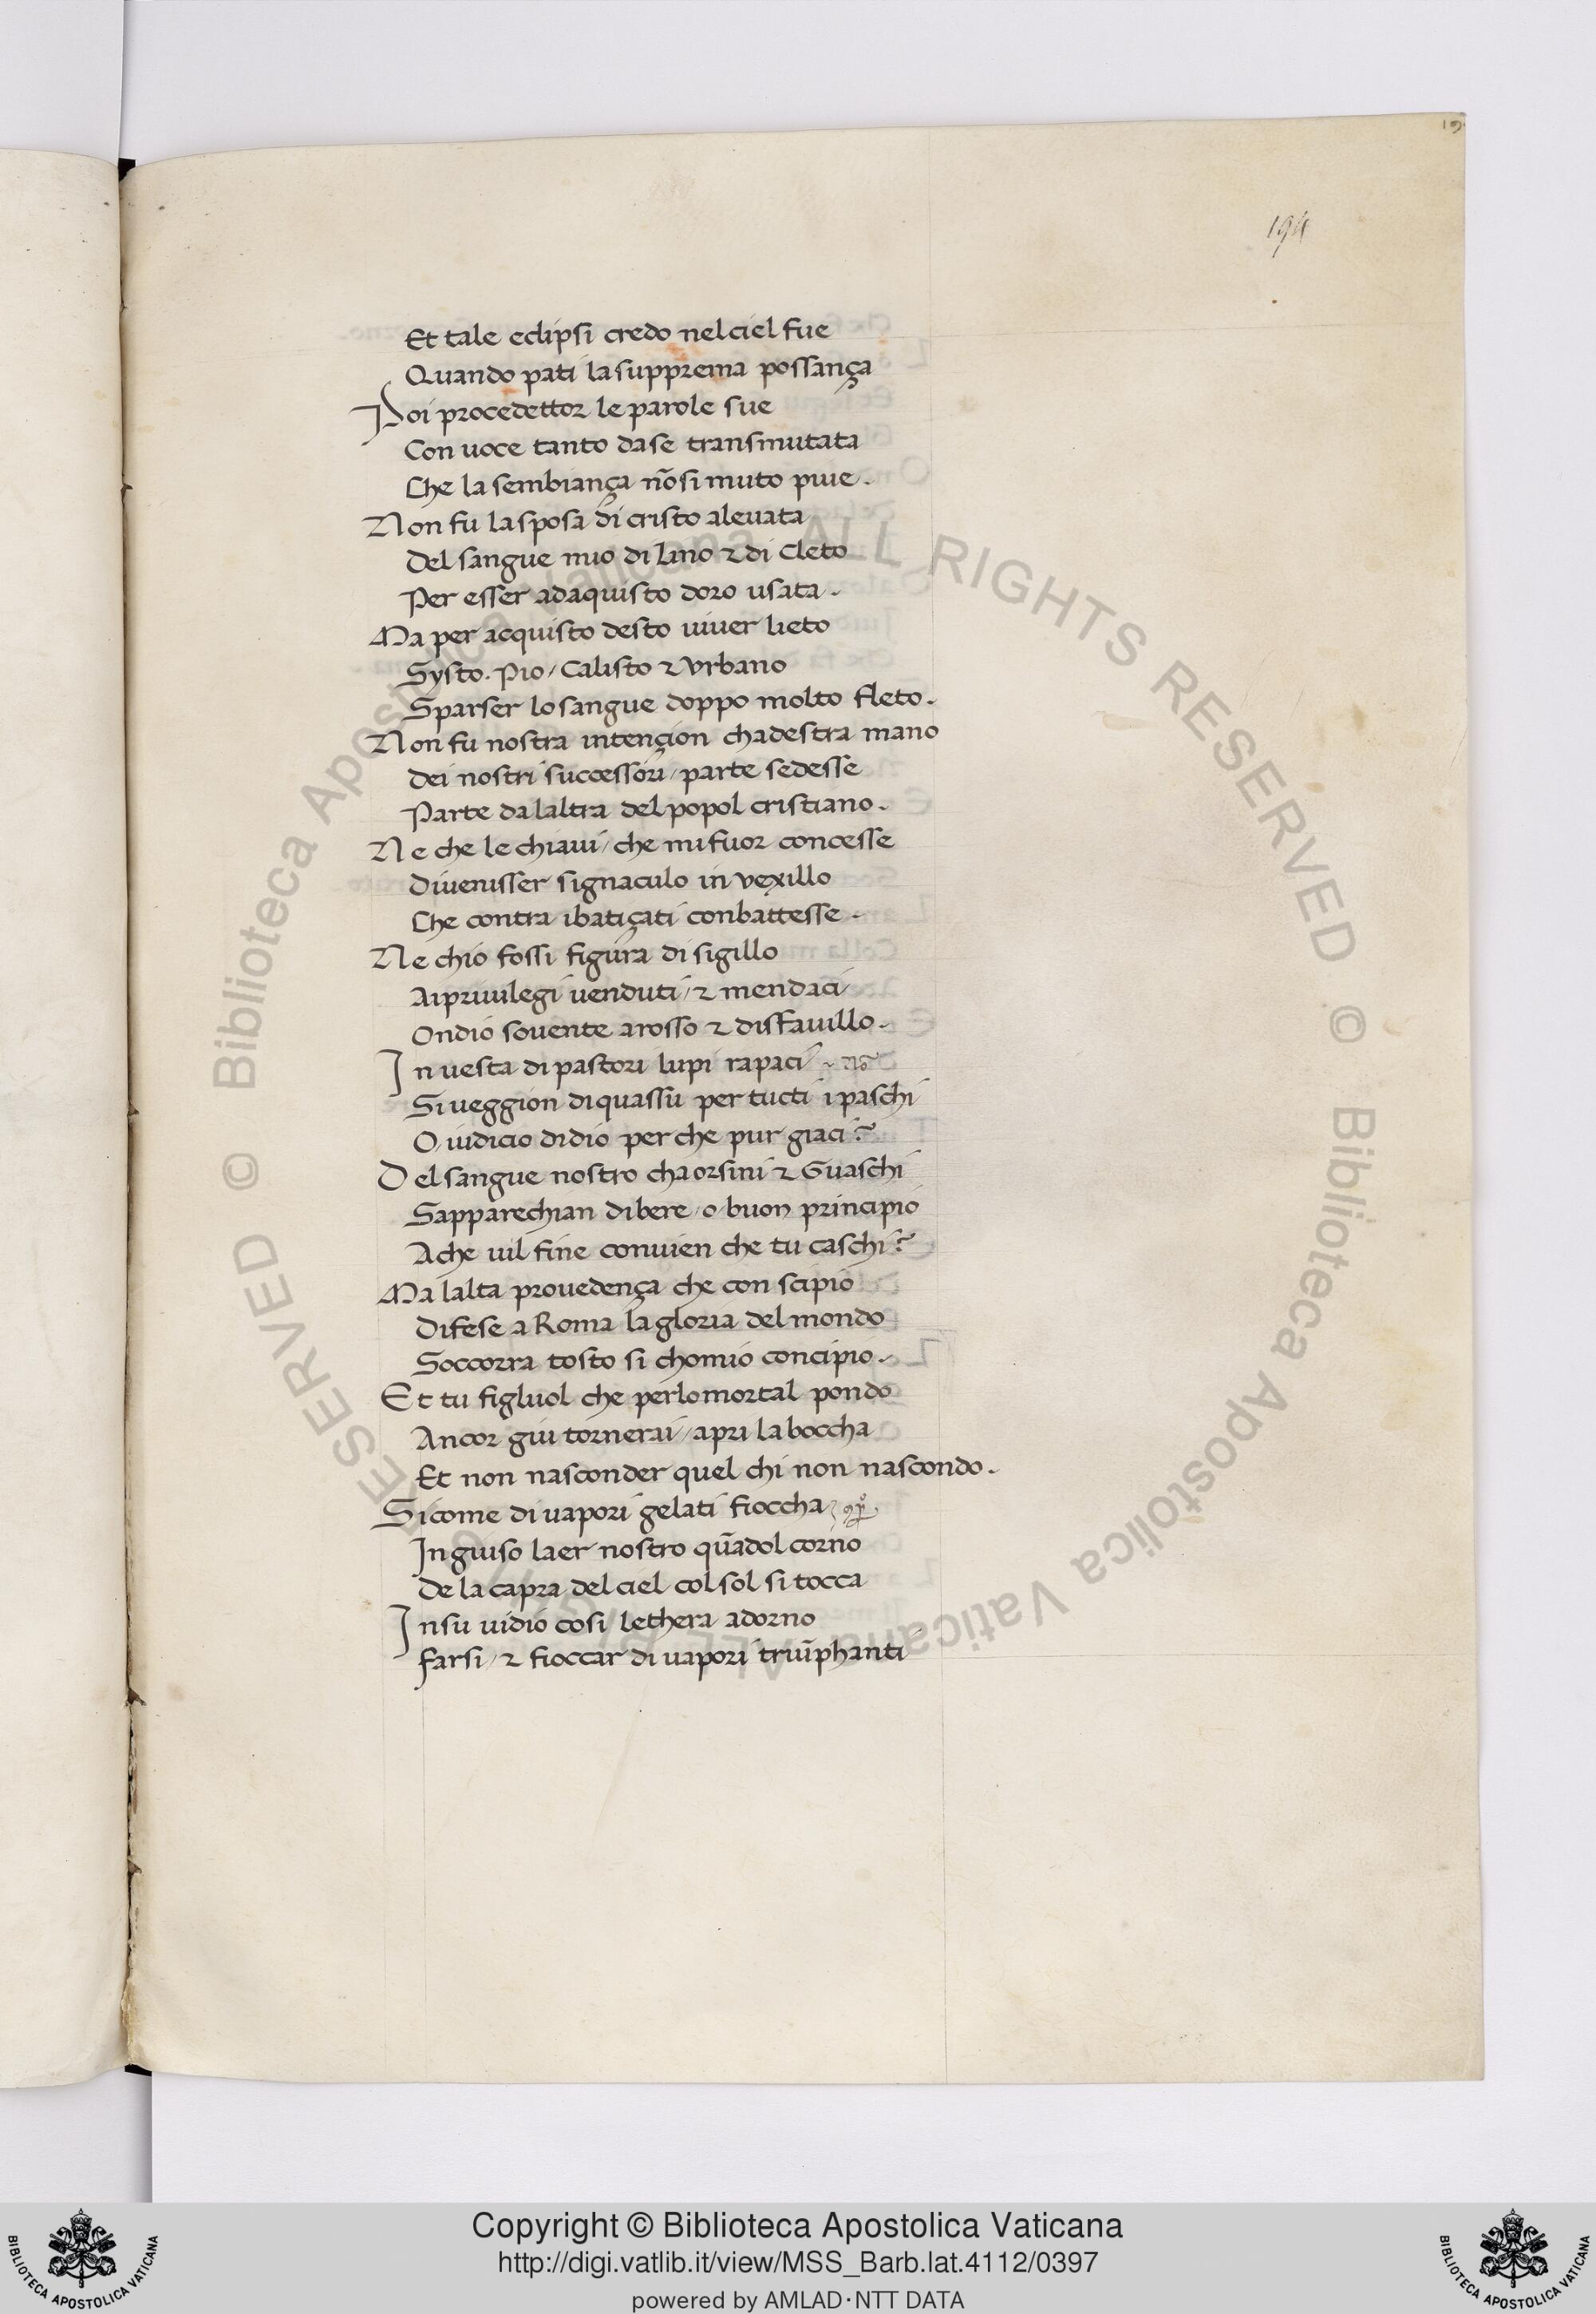 19
194
Et tale eclipsi credo nel ciel fue
Quando pati la supprema possança
Poi procedettor le parole sue
Con uoce tanto da se transmutata
Che la sembiança nõ si muto piue.
Non fu la sposa di cristo aleuata
Del sangue mio di Lino & di Cleto
Per esser ad aquisto doro usata.
Ma per acquisto desto uiuer lieto
Systo. Pio / Calisto & Vrbano
Sparser lo sangue doppo molto fleto.
Non fu nostra intençion chadestra mano
Dei nostri successori / parte sedesse
Parte da laltra del popol cristiano.
Ne che le chiaui / che mi fuor concesse
Diuenisser signaculo in vexillo
Che contra ibatiçati conbattesse.
Ne chio fossi figura di sigillo
Ai priuilegi uenduti / & mendaci
Ondio souente arosso & disfauillo.
In uesta di pastori lupi rapaci
Si ueggion di quassu per tucti i paschi
O iudicio didio per che pur giaci?
Del sangue nostro chaorsini & Guaschi
Sapparechian di bere / o / buon principio
A che uil fine conuien che tu caschi?
Ma lalta prouedença che con scipio
Difese a Roma la gloria del mondo
Soccorra tosto si chomio concipio.
Et tu figluol che per lo mortal pondo
Ancor giu tornerai / apri la boccha
Et non nasconder quel chi non nascondo.
Si come di uapori gelati fioccha
In giuso laer nostro qũadol corno
De la capra del ciel col sol si tocca
In su uidio cosi lethera adorno
Farsi / & fioccar di uapori triũphanti
© Biblioteca Apostolica Vaticana ALL RIGHTS RESERVED
© Biblioteca Apostolica Vaticana ALL RIGHTS RESERVED
Copyright © Biblioteca Apostolica Vaticana
http://digi.vatlib.it/view/MSS_Barb.lat.4112/0397
powered by AMLAD·NTT DATA
BIBLIOTECA APOSTOLICA VATICANA
BIBLIOTECA APOSTOLICA VATICANA